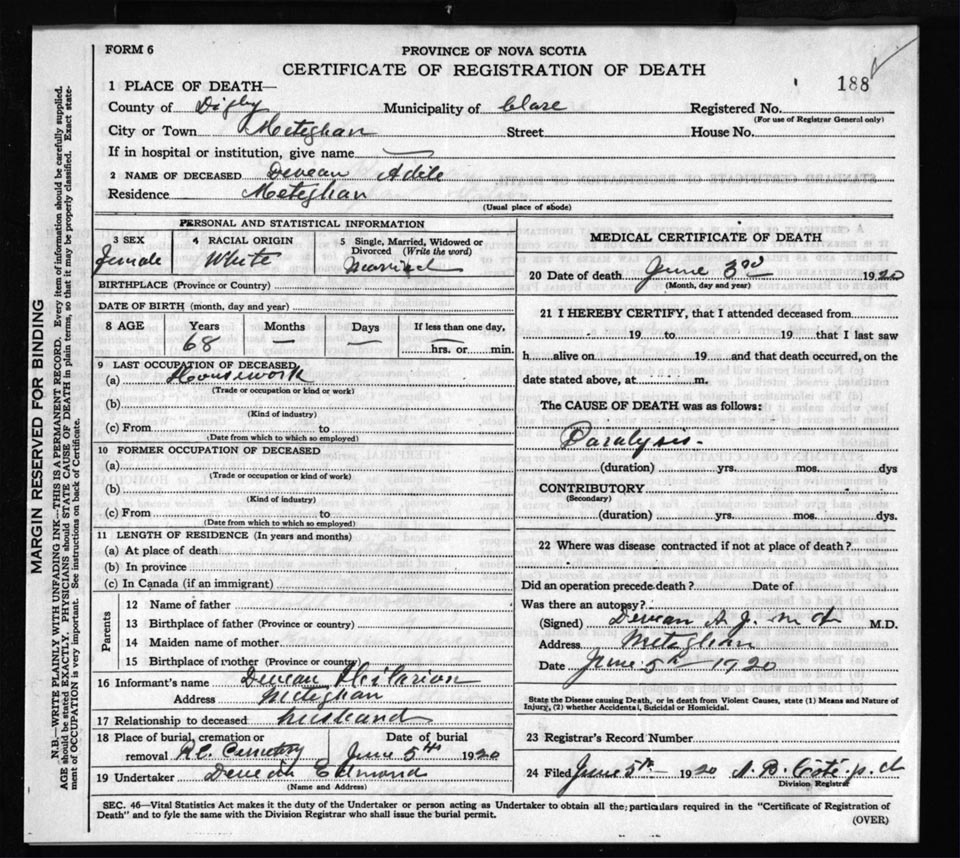 FORM 6
PROVINCE OF NOVA SCOTIA
CERTIFICATE OF REGISTRATION OF DEATH
188
1 PLACE OF DEATH—
County of Digby Municipality of Clare Registered No.
(For use of Registrar General only)
City or Town Meteghan Street House No.
If in hospital or institution, give name
2 NAME OF DECEASED Deveau Adèle
Residence Meteghan
(Usual place of abode)
PERSONAL AND STATISTICAL INFORMATION
3 SEX 4 RACIAL ORIGIN 5 Single, Married, Widowed or Divorced (Write the word)
Female White Married
BIRTHPLACE (Province or Country)
DATE OF BIRTH (month, day and year)
8 AGE Years Months Days If less than one day,
68 — — hrs. or min.
9 LAST OCCUPATION OF DECEASED
(a) Housework
(Trade or occupation or kind or work)
(b)
(Kind of industry)
(c) From to
(Date from which to which so employed)
10 FORMER OCCUPATION OF DECEASED
(a)
(Trade or occupation or kind of work)
(b)
(Kind of industry)
(c) From to
(Date from which to which so employed)
11 LENGTH OF RESIDENCE (In years and months)
(a) At place of death
(b) In province
(c) In Canada (if an immigrant)
Parents
12 Name of father
13 Birthplace of father (Province or country)
14 Maiden name of mother
15 Birthplace of mother (Province or country)
16 Informant's name Deveau Hilarion
Address Meteghan
17 Relationship to deceased husband
18 Place of burial, cremation or removal R.C. Cemetery Date of burial June 5th 1920
19 Undertaker Deveau Edmond
(Name and Address)
MEDICAL CERTIFICATE OF DEATH
20 Date of death June 3rd 1920
(Month, day and year)
21 I HEREBY CERTIFY, that I attended deceased from
19 to 19 that I last saw
h alive on 19 and that death occurred, on the
date stated above, at m.
The CAUSE OF DEATH was as follows:
Paralysis.
(duration) yrs. mos. dys
CONTRIBUTORY
(Secondary)
(duration) yrs. mos. dys.
22 Where was disease contracted if not at place of death?
Did an operation precede death? Date of
Was there an autopsy?
(Signed) Deveau A. J. M.D. M.D.
Address Meteghan
Date June 5th 1920
State the Disease causing Death, or in death from Violent Causes, state (1) Means and Nature of
Injury, (2) whether Accidental, Suicidal or Homicidal.
23 Registrar's Record Number
24 Filed June 5th 1920
Division Registrar
SEC. 46—Vital Statistics Act makes it the duty of the Undertaker or person acting as Undertaker to obtain all the particulars required in the "Certificate of Registration of
Death" and to fyle the same with the Division Registrar who shall issue the burial permit.
(OVER)
MARGIN RESERVED FOR BINDING
N.B.—WRITE PLAINLY WITH UNFADING INK—THIS IS A PERMANENT RECORD. Every item of information should be carefully supplied.
AGE should be stated EXACTLY. PHYSICIANS should STATE CAUSE OF DEATH in plain terms, so that it may be properly classified. Exact state-
ment of OCCUPATION is very important. See instructions on back of Certificate.